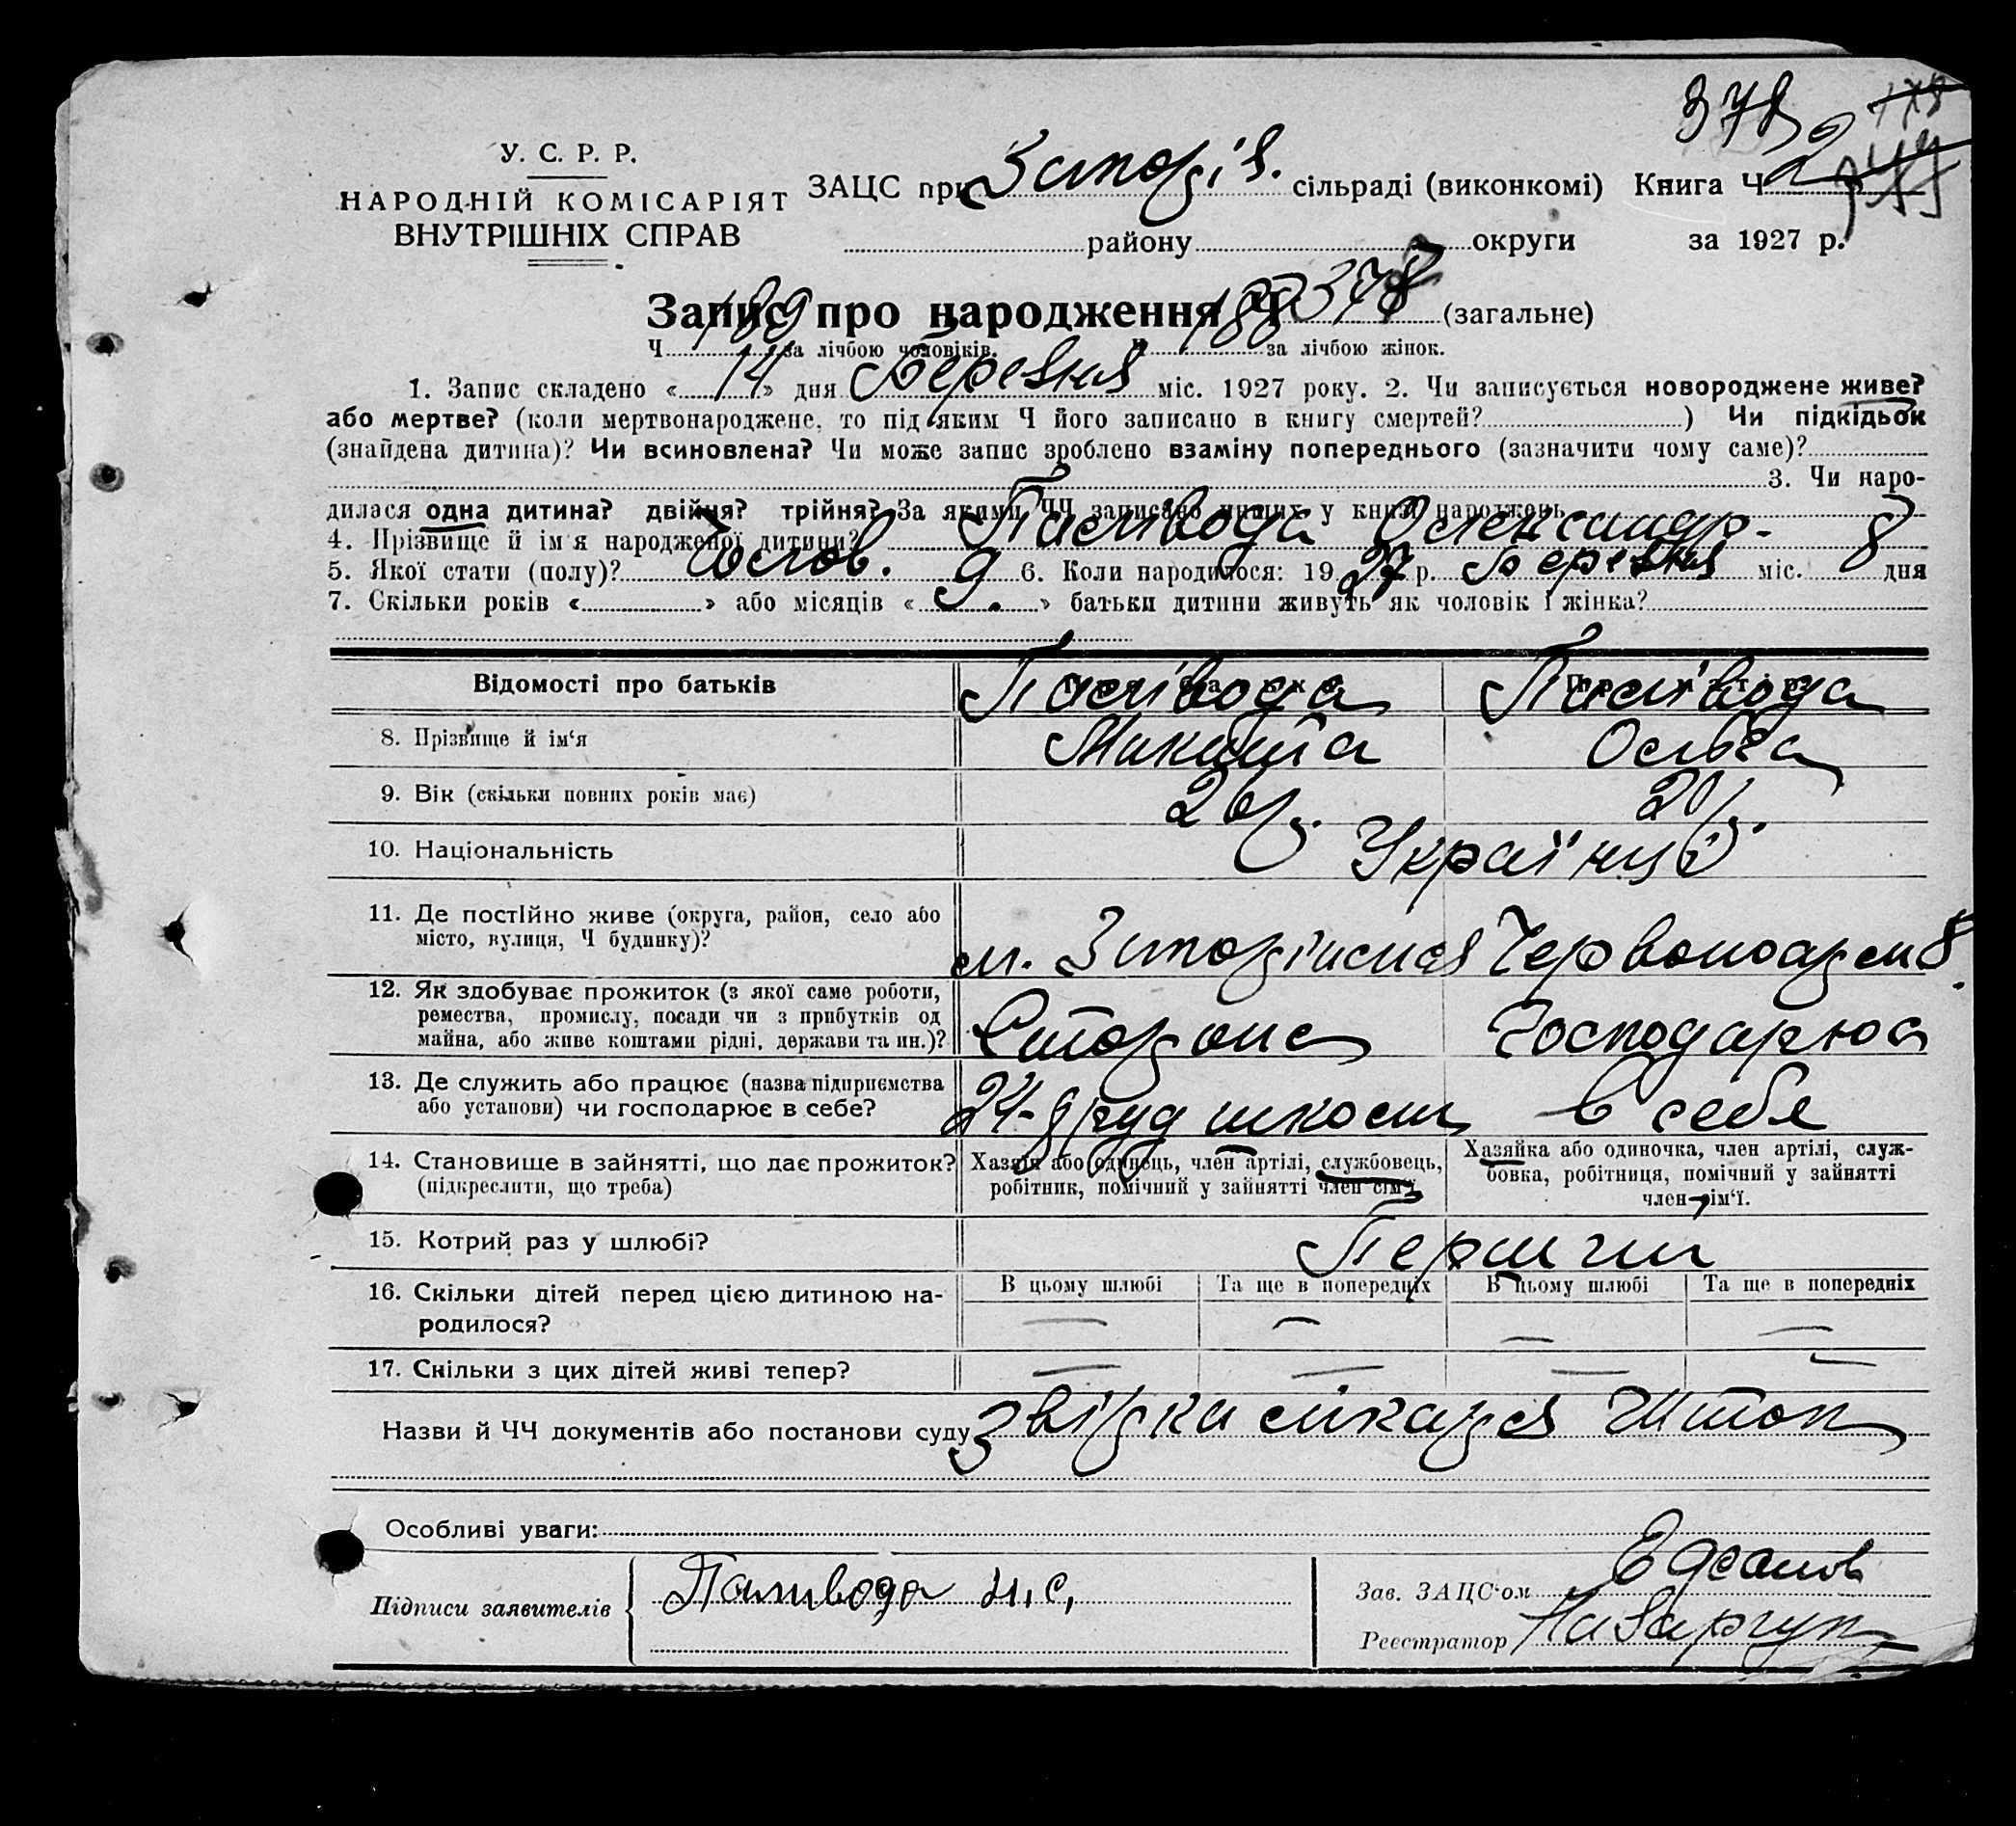 378
У. С. Р. Р.
НАРОДНІЙ КОМІСАРІЯТ
ВНУТРІШНІХ СПРАВ
ЗАЦС при сільраді (виконкомі) Книга Ч 2
району округи за 1927 р.
Запис про народження Ч 378 (загальне)
Ч 189 за лічбою чоловіків. Ч 188 за лічбою жінок.
1. Запис складено « 14 » дня Березня міс. 1927 року. 2. Чи записується новороджене живе?
або мертве? (коли мертвонароджене, то під яким Ч його записано в книгу смертей? ) Чи підкідьок
(знайдена дитина)? Чи всиновлена? Чи може запис зроблено взаміну попереднього (зазначити чому саме)?
3. Чи наро-
дилася одна дитина? двійня? трійня? За якими ЧЧ записано инших у книзі народжень
4. Прізвище й ім'я народженої дитини? Паливода Олександр.
5. Якої стати (полу)? Чолов. 6. Коли народилося: 1927 р. Березня міс. 8 дня
7. Скільки років « » або місяців « 9. » батьки дитини живуть як чоловік і жінка?
Відомості про батьків
Паливода Паливода
8. Прізвище й ім'я Микита Ольга
9. Вік (скільки повних років має) 26 р. 20 р.
10. Національність Українці
11. Де постійно живе (округа, район, село або
місто, вулиця, Ч будинку)?
12. Як здобуває прожиток (з якої саме роботи,
ремества, промислу, посади чи з прибутків од
майна, або живе коштами рідні, держави та ин.)?
Сторож Господарює
13. Де служить або працює (назва підприємства
або установи) чи господарює в себе?
24 труд школи в себе
14. Становище в зайнятті, що дає прожиток?
(підкреслити, що треба)
Хазяїн або одинець, член артілі, службовець,
робітник, помічний у зайнятті член сім'ї
Хазяйка або одиночка, член артілі, служ-
бовка, робітниця, помічний у зайнятті
член сім'ї.
15. Котрий раз у шлюбі? Перший
16. Скільки дітей перед цією дитиною на-
родилося?
В цьому шлюбі Та ще в попередніх В цьому шлюбі Та ще в попередніх
— — — —
17. Скільки з цих дітей живі тепер? — — — —
Назви й ЧЧ документів або постанови суду
Особливі уваги:
Підписи заявителів Паливода
Зав. ЗАЦС'ом
Реєстратор